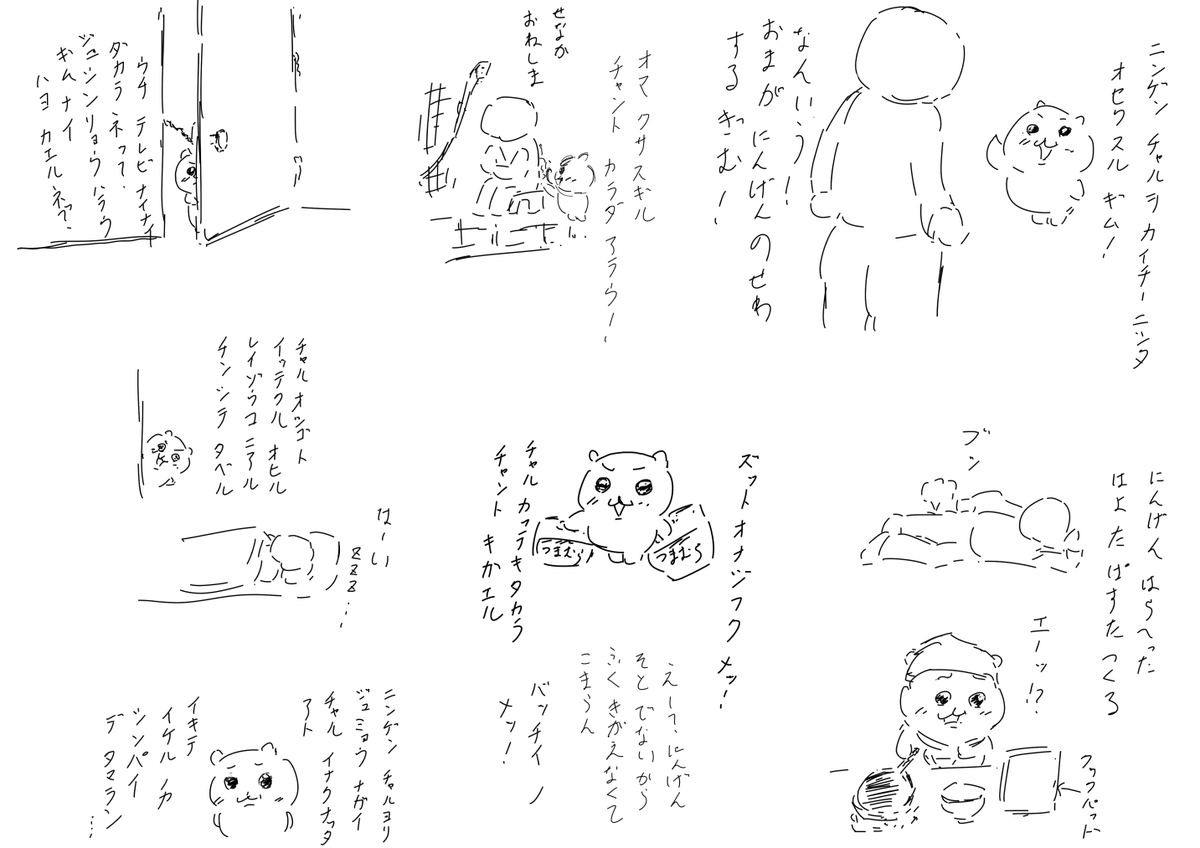 ニンゲン チャルヲ カイチーニンタ
オセワスル ギム!
なんいう!
おまが にんげん のせわ
する ぎむ!
オマ クサスギル
チャント カラダ アラウ!
せなか
おねしま
ウチ テレビ ナイナ
ダカラ ネッて.
ジュシンリョウ ハラウ
ギム ナイ
ハヨ カエルネっ?.
にんげん はらへった
はよ たぱすた つくる
ブン
エーッ!?
フワフパット
ズット オナジフク メッ!
つまむら
つまむら
チャル カッテキタカラ
チャント キかエル
えー?. にんげん
そと でないから
ふく きがえなくて
こまらん
バッチイ ノ
メッ!
チャル オシゴト
イッテクル オヒル
レイゾウコ ニアル
チンシテ タベル
はーい
zzz...
ニンゲン チャルヨリ
ジュミョウ ナガイ
チャル イナクナッタ
アト
イキテ
イケル ノカ
シンパイ
デ タマラン
...